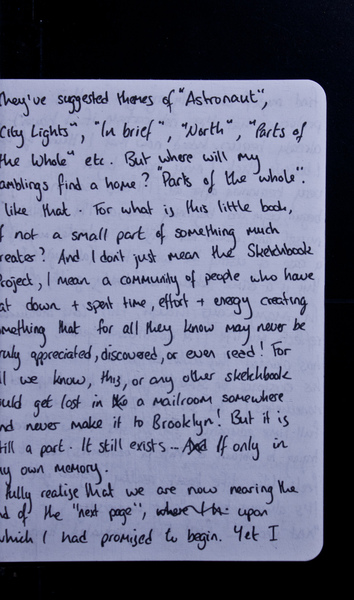 They've suggested themes of "Astronaut",
City Lights", "In brief", "North", "Parts of
the Whole" etc. But where will my
amblings find a home? "Parts of the whole".
like that. For what is this little book,
f not a small part of something much
reater? And I don't just mean the Sketchbook
Project, I mean a community of people who have
at down + spent time, effort + energy creating
mething that for all they know may never be
ruly appreciated, discovered, or even read! For
ll we know, this, or any other sketchbook
ould get lost in a mailroom somewhere
nd never make it to Brooklyn! But it is
till a part. It still exists... And If only in
my own memory.
fully realise that we are now nearing the
nd of the "next page", where upon
which I had promised to begin. Yet I